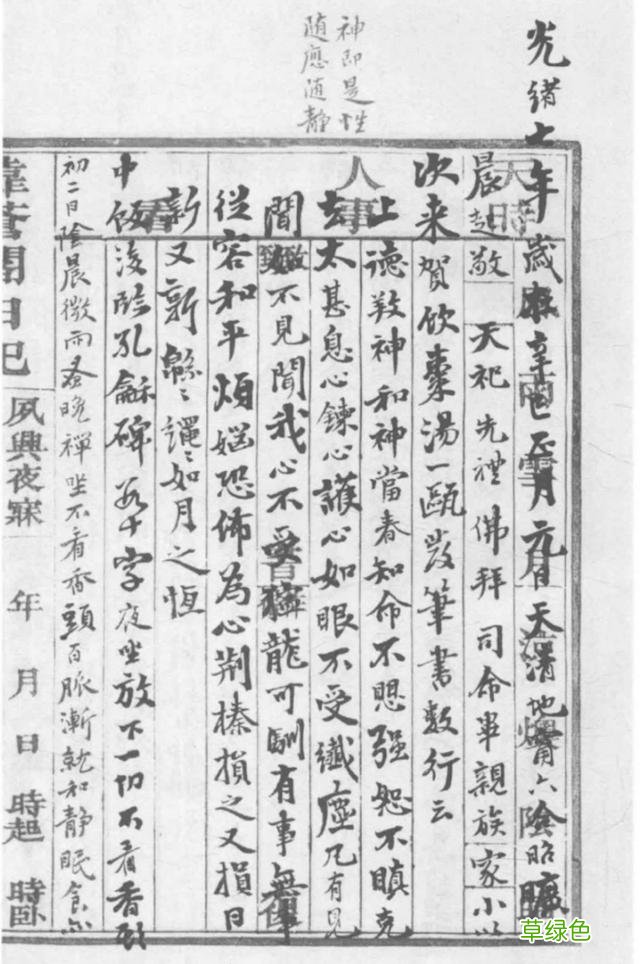 光緒七年歲在辛巳正月元日天清地甯六陰昭曠
晨起敬天祀先禮佛拜司命畢親族家小以
次来賀飲棗湯一甌發筆書數行云
上德敦神和神當春知命不惥强恕不瞋克
去太甚息心鍊心護心如眼不受纖塵凡有見
聞如不見聞我心不受獰龍可馴有事無事
從容和平煩惱恐怖為心荆榛損之又損日
新又新緜緜繩繩如月之恆
中飯後臨孔龢碑若干字夜坐放下一切不看香頭
初二日陰晨微雨蚤晚禪坐不看香頭百脈漸就和静眠食亦
神即是性
随應随静
人事
日記
夙興夜寐
年
月
日
時起
時卧
草绿色